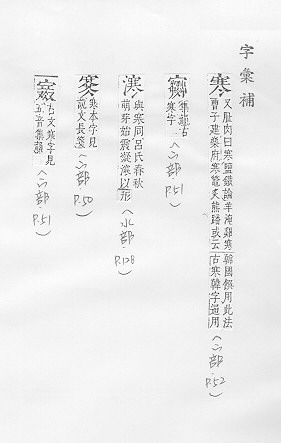 字彙補
寒 又肚肉曰寒鹽鐵論羊淹雞寒韓國饌用此法
曹子建樂府寒鼈炙熊蹯或云古寒韓字通用
(宀部. P.52
集韻古
寒字
(宀部 P.51
與寒同呂氏春秋
萌芽始震凝滾以形
(水部 P.128
寒本字見
說文長箋
(宀部. P.50
古文寒字見
五音集韻
(宀部. P.51)